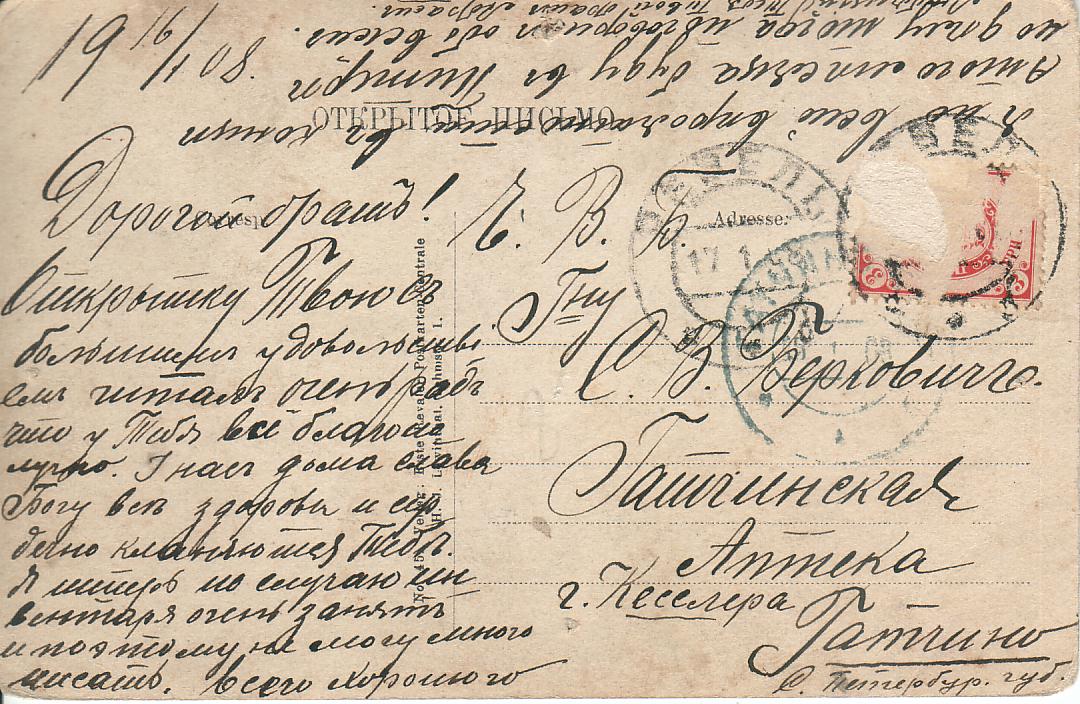 19 16/I 08.
ОТКРЫТОЕ ПИСЬМО.
Дорогой братъ!
Открытку Твою съ
большимъ удовольстві
емъ читалъ очень радъ
что у Тебя всё благопо
лучно. У насъ дома слава
Богу всѣ здоровы и сер
дечно кланяются Тебѣ.
Я теперь по случаю ин
вентаря очень занятъ
и поэтому не могу много
писать. Всего хорошего
въ концѣ
этого мѣсяца буду въ Питерѣ
тогда поговоримъ объ всемъ.
Твой братъ
Adresse:
Е. В. Б.
Гну
С. В. Берковичъ.
Гатчинская
Аптека
г. Кесселера
Гатчино
С. Петербур. губ.
ВЕНДЕНЪ
17 1
3